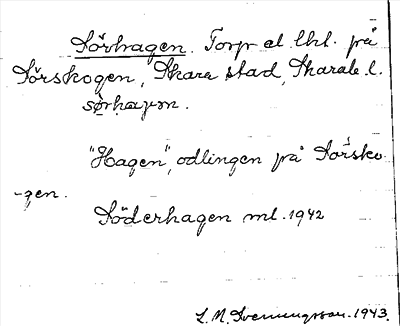 Sörhagen. Torp el. lht. på
Sörskogen, Skara stad, Skarab. l.
"Hagen", odlingen på Sörsko-
-gen.
Söderhagen ml. 1942
L. M. Svenungsson. 1943.